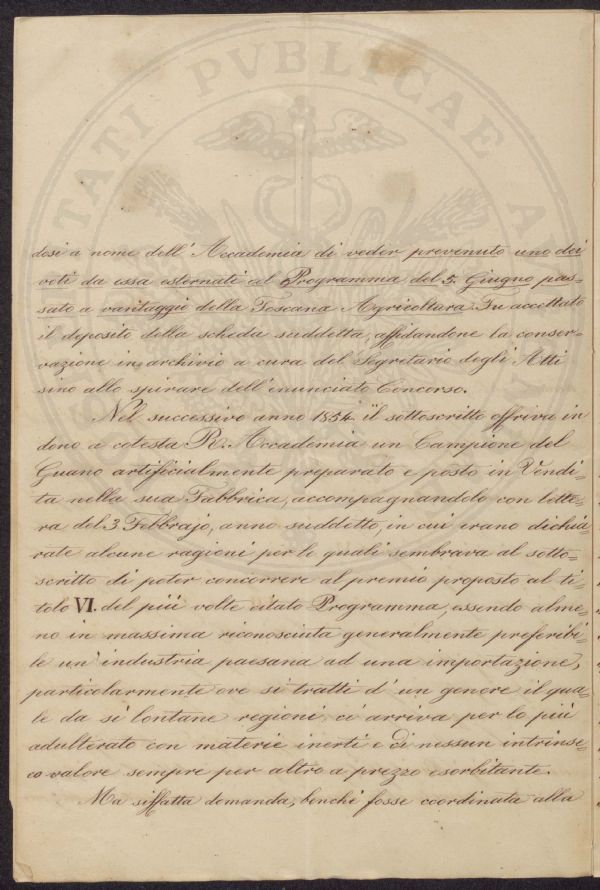 TATI PVBLICAE
dosi a nome dell'Accademia di veder prevenuto uno dei
voti da essa esternati col Programma del 5. Giugno pas=
sato a vantaggio della Toscana Agricoltura. Fu accettato
il deposito della scheda suddetta, affidandone la conser=
vazione in archivio a cura del Segretario degli Atti
sino allo spirare dell'enunciato Concorso.
Nel successivo anno 1854 il sottoscritto offriva in
dono a cotesta R. Accademia un Campione del
Guano artificialmente preparato e posto in Vendi=
ta nella sua Fabbrica, accompagnandolo con lette=
ra del 3 Febbrajo, anno suddetto, in cui erano dichia=
rate alcune ragioni per le quali sembrava al sotto=
scritto di poter concorrere al premio proposto al ti=
tolo VI. del più volte citato Programma, essendo alme=
no in massima riconosciuta generalmente preferibi=
le un'industria paesana ad una importazione,
particolarmente ove si tratti d'un genere il qua=
le da sì lontane regioni ci arriva per lo più
adulterato con materie inerti e di nessun intrinse=
co valore sempre per altro a prezzo esorbitante.
Ma siffatta domanda, benchè fosse coordinata alla